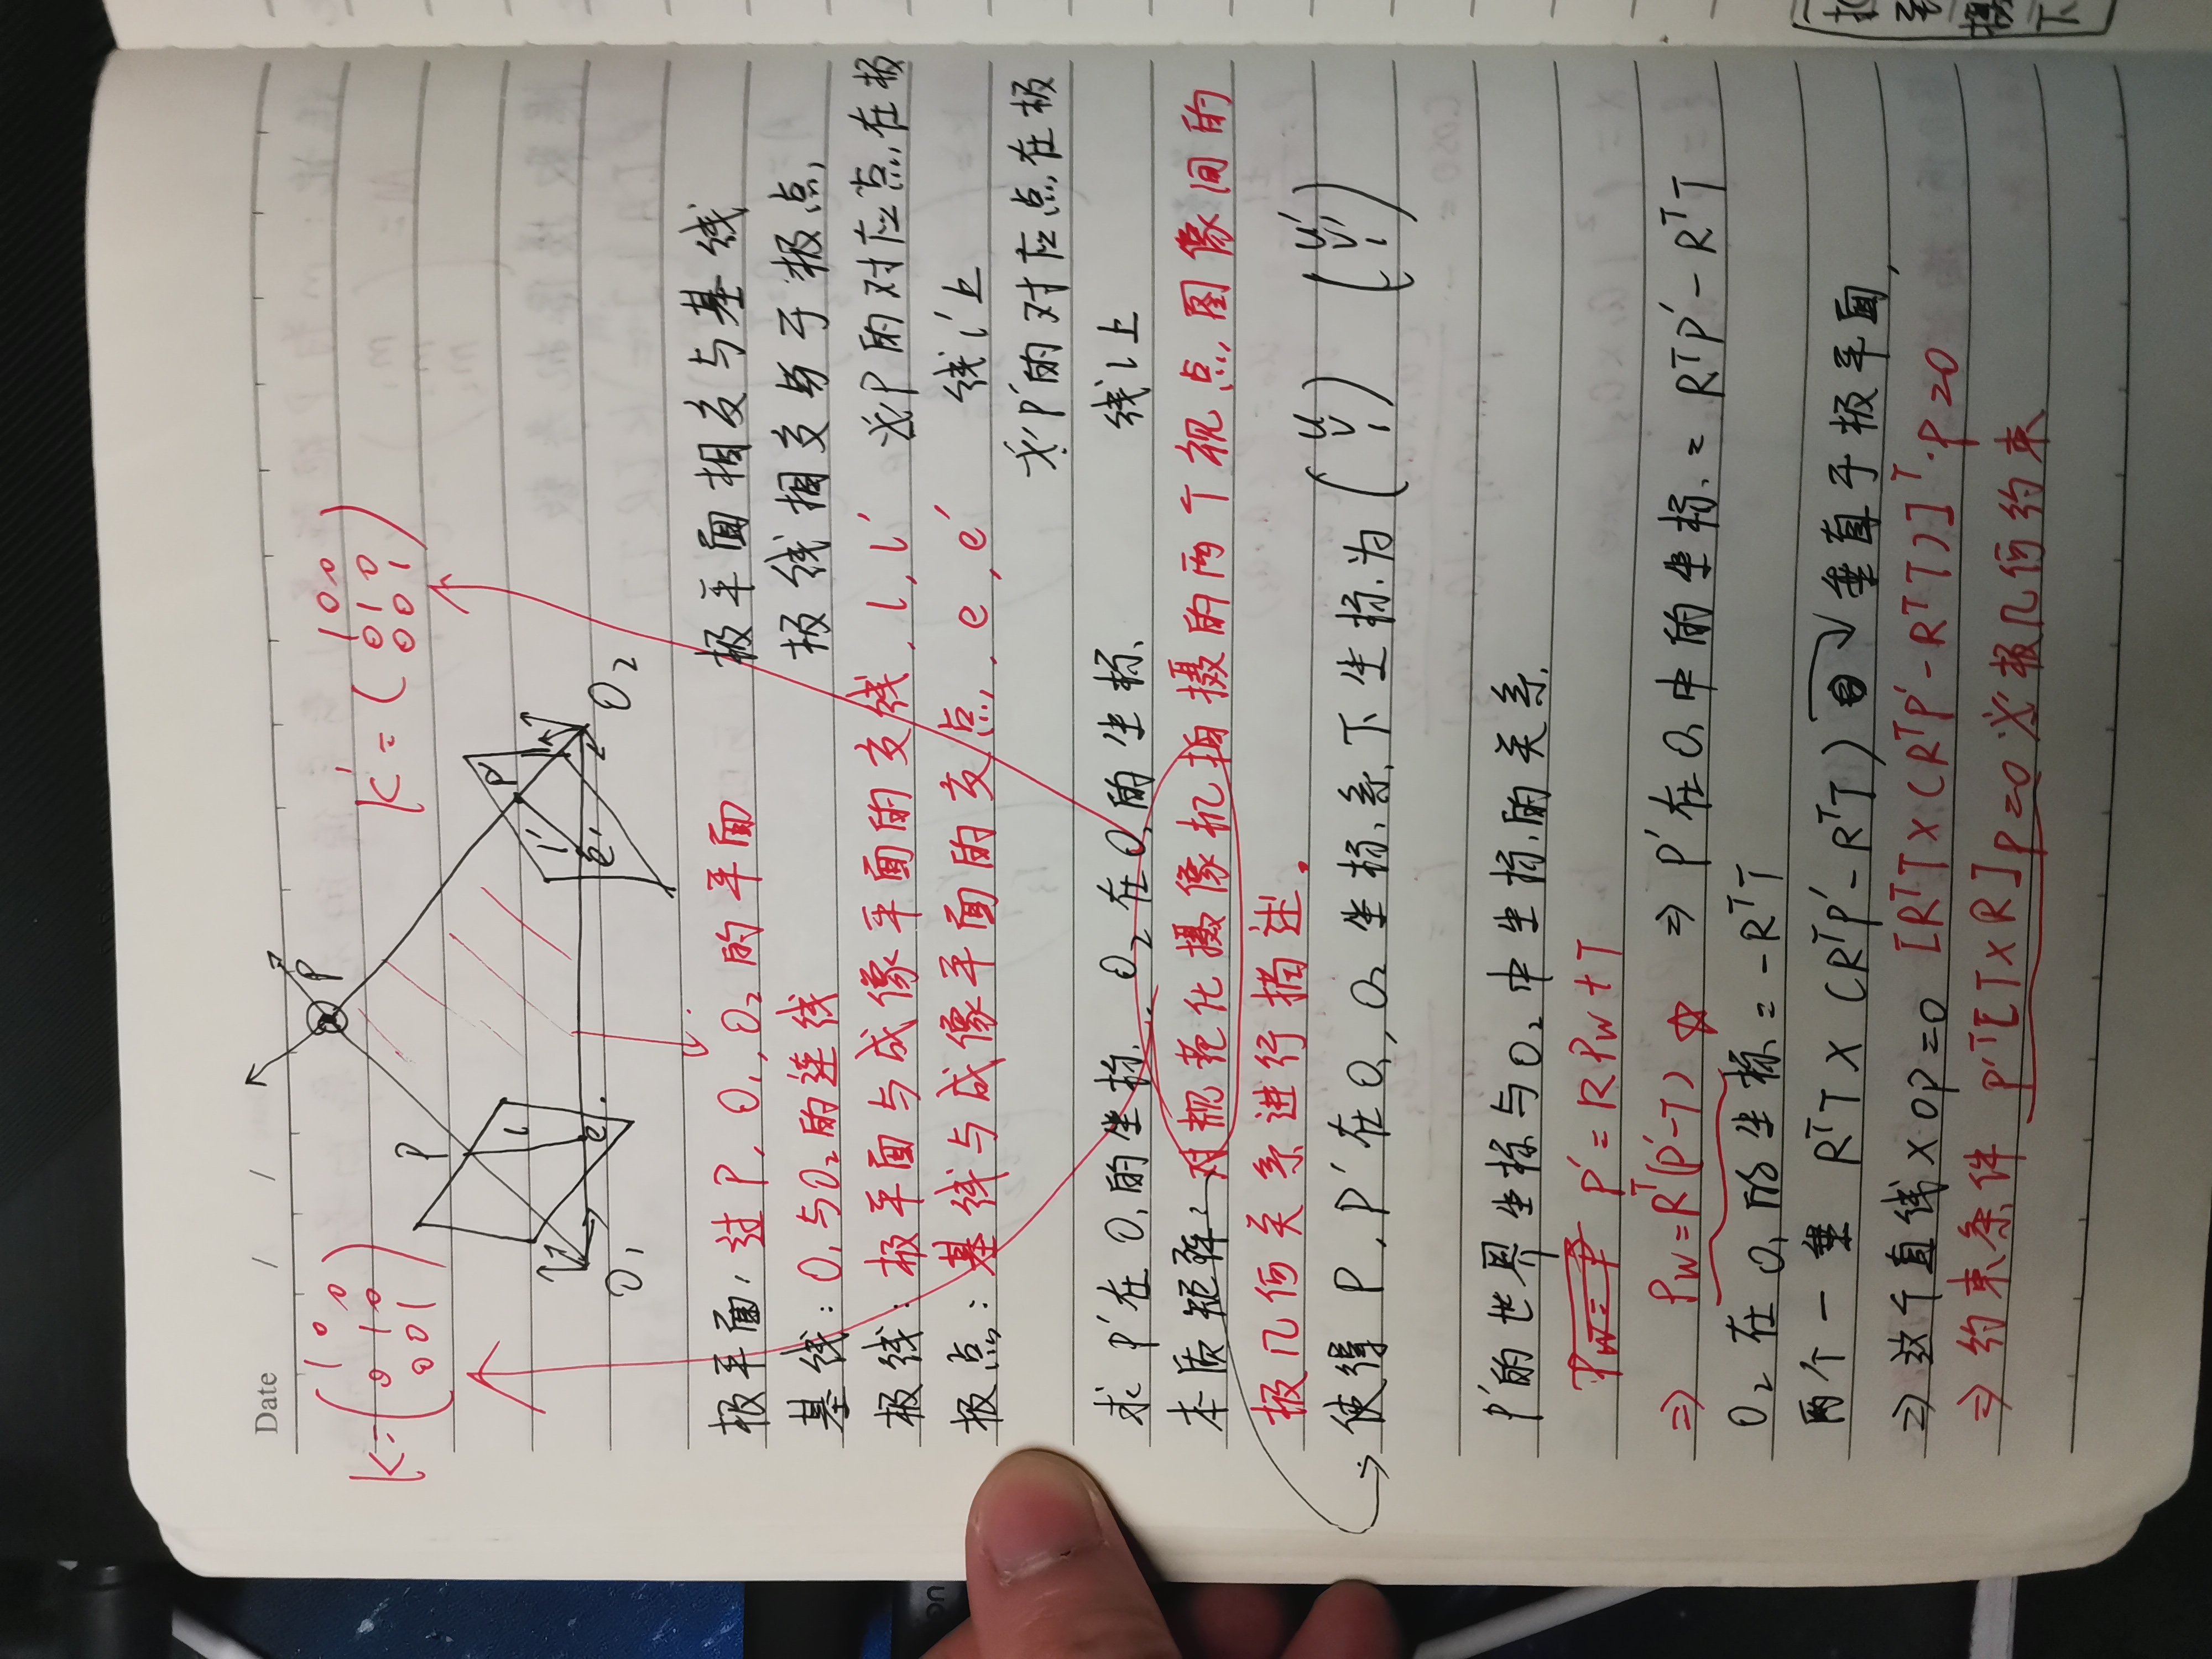 Date / /
K=(1 0 0
0 1 0
0 0 1)
K'=(1 0 0
0 1 0
0 0 1)
P
P
P'
l
l'
e
e'
O₁
O₂
极平面: 过P, O₁, O₂的平面
极平面相交与基线
基线: O₁与O₂的连线
极线相交与于极点
极线: 极平面与成像平面的交线, l, l'
※P的对应点在极
极点: 基线与成像平面的交点, e, e'
线l'上
※P'的对应点在极
求P'在O₁的坐标. O₂在O₁的坐标.
线l上
本质矩阵: 对规范化摄像机拍摄的两个视点图像间的
极几何关系进行描述.
→使得P, P'在O₁, O₂坐标系下坐标为 (u v 1) (u' v' 1)
P'的世界坐标与O₂中坐标的关系.
P'=RPw+T
⇒ Pw=Rᵀ(P'-T) ☆ ⇒ P'在O₁中的坐标 = RᵀP'-RᵀT
O₂在O₁的坐标 = -RᵀT
两个一乘 RᵀT×(RᵀP'-RᵀT) 垂直于极平面
⇒ 这个直线×OP=0 [RᵀT×(RᵀP'-RᵀT)]ᵀ·P=0
⇒ 约束条件 P'ᵀ[T×R]P=0 ※极几何约束